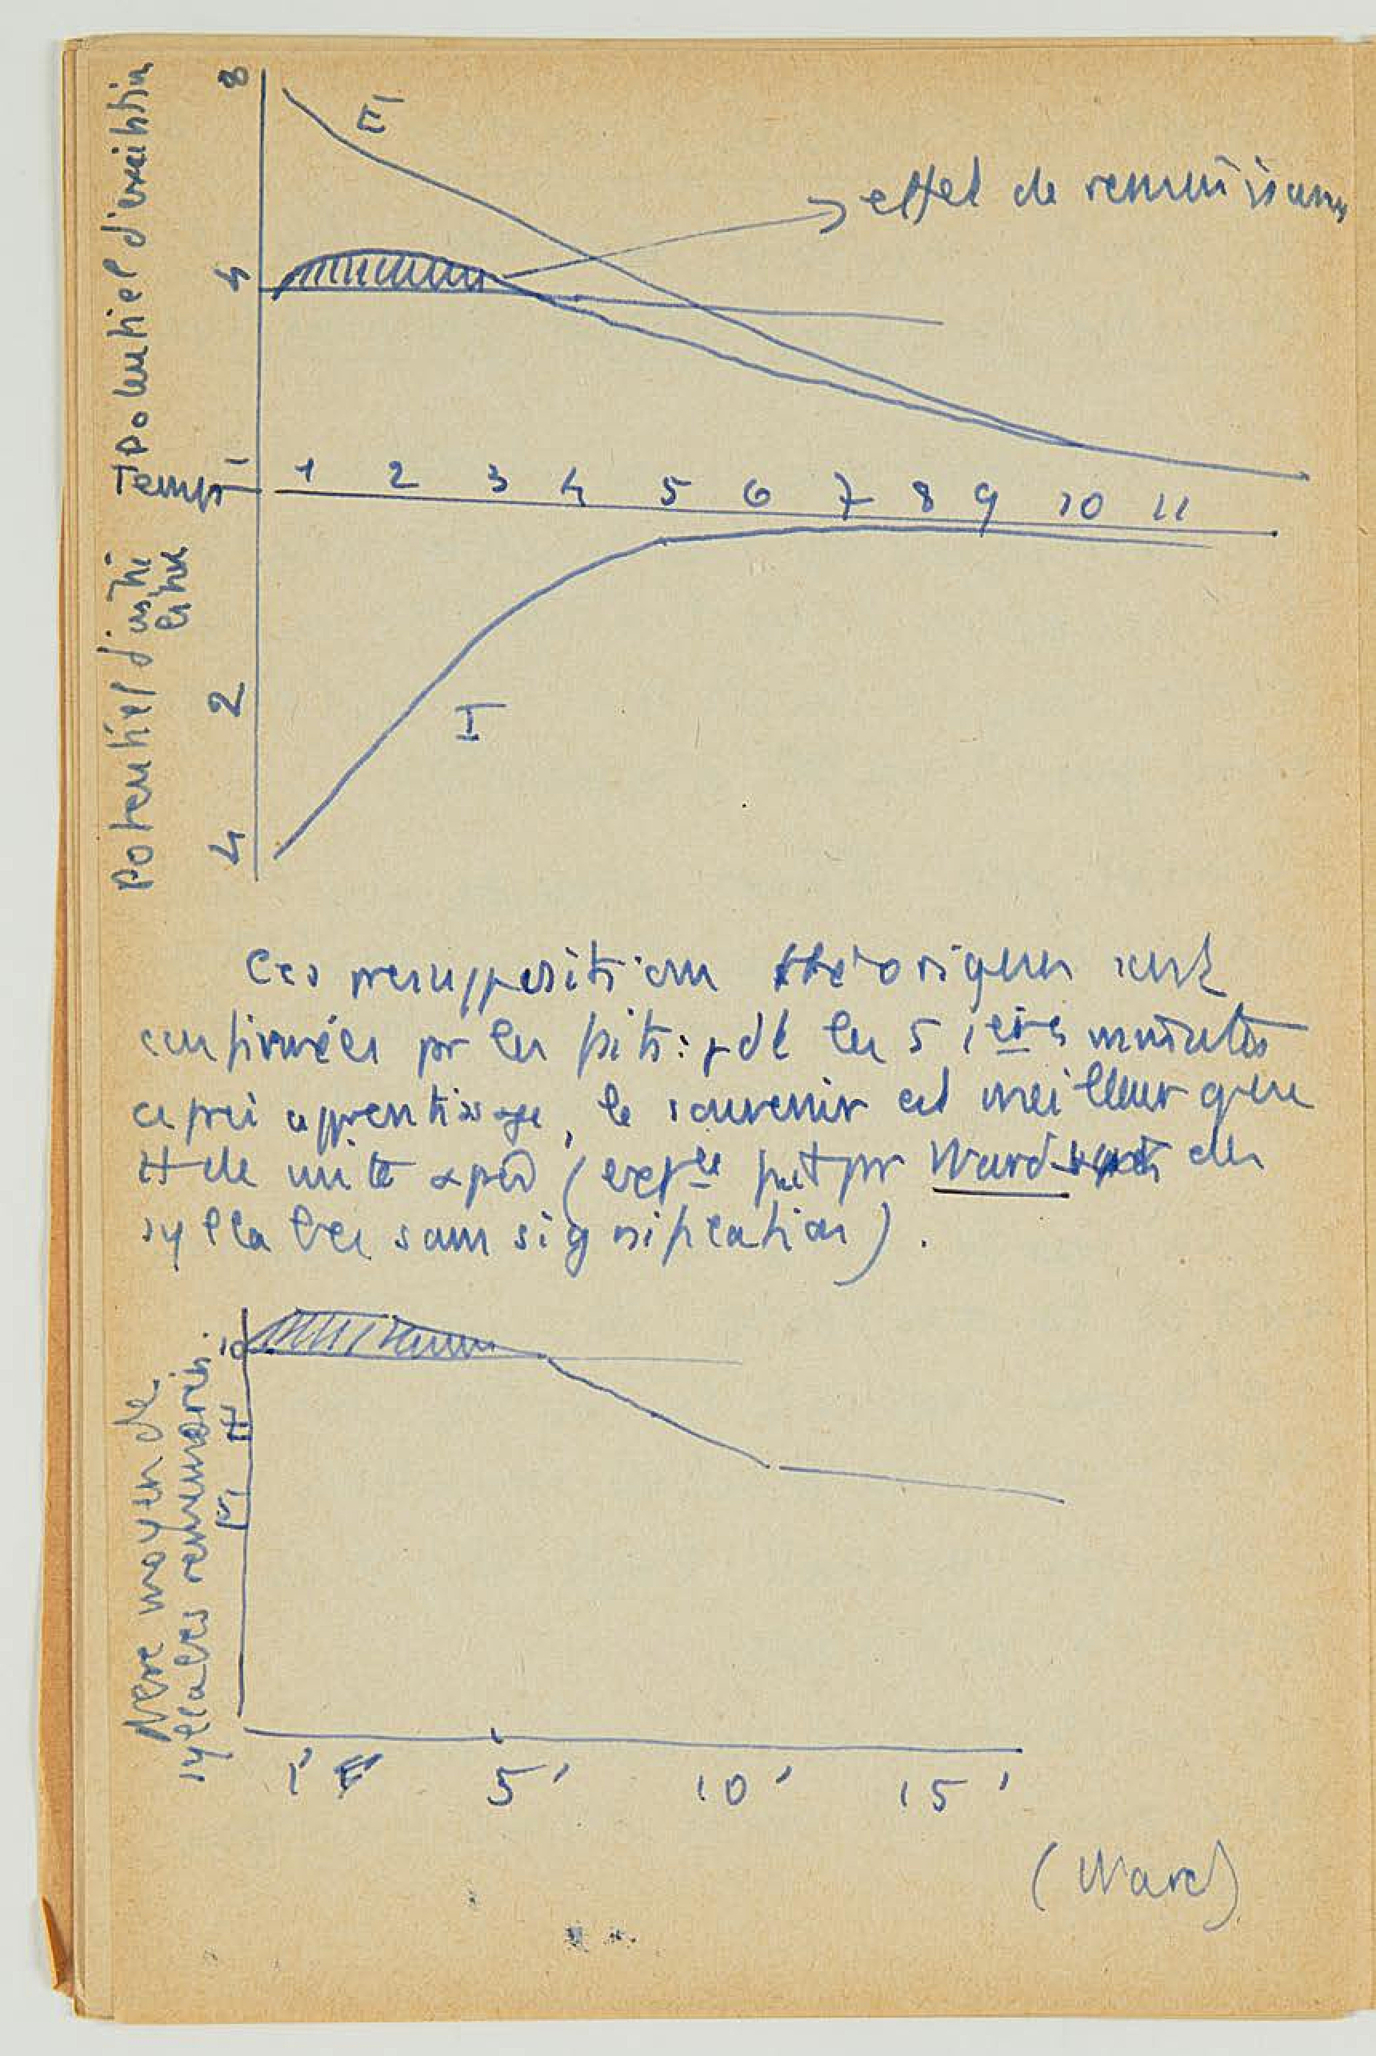 8
E
Potentiel d'excitation
effet de réminiscence
4
Temps
1 2 3 4 5 6 7 8 9 10 11
Potentiel d'inhi
2
I
4
Ces présuppositions théoriques sont
confirmées pr les : pdt les 5 1ères minutes
après apprentissage, le souvenir est meilleur que
de suite après (expce fait pr Ward des
syllabes sans signification).
10
Nbre moyen de
syllabes remémorées
1' 5' 10' 15'
(Ward)